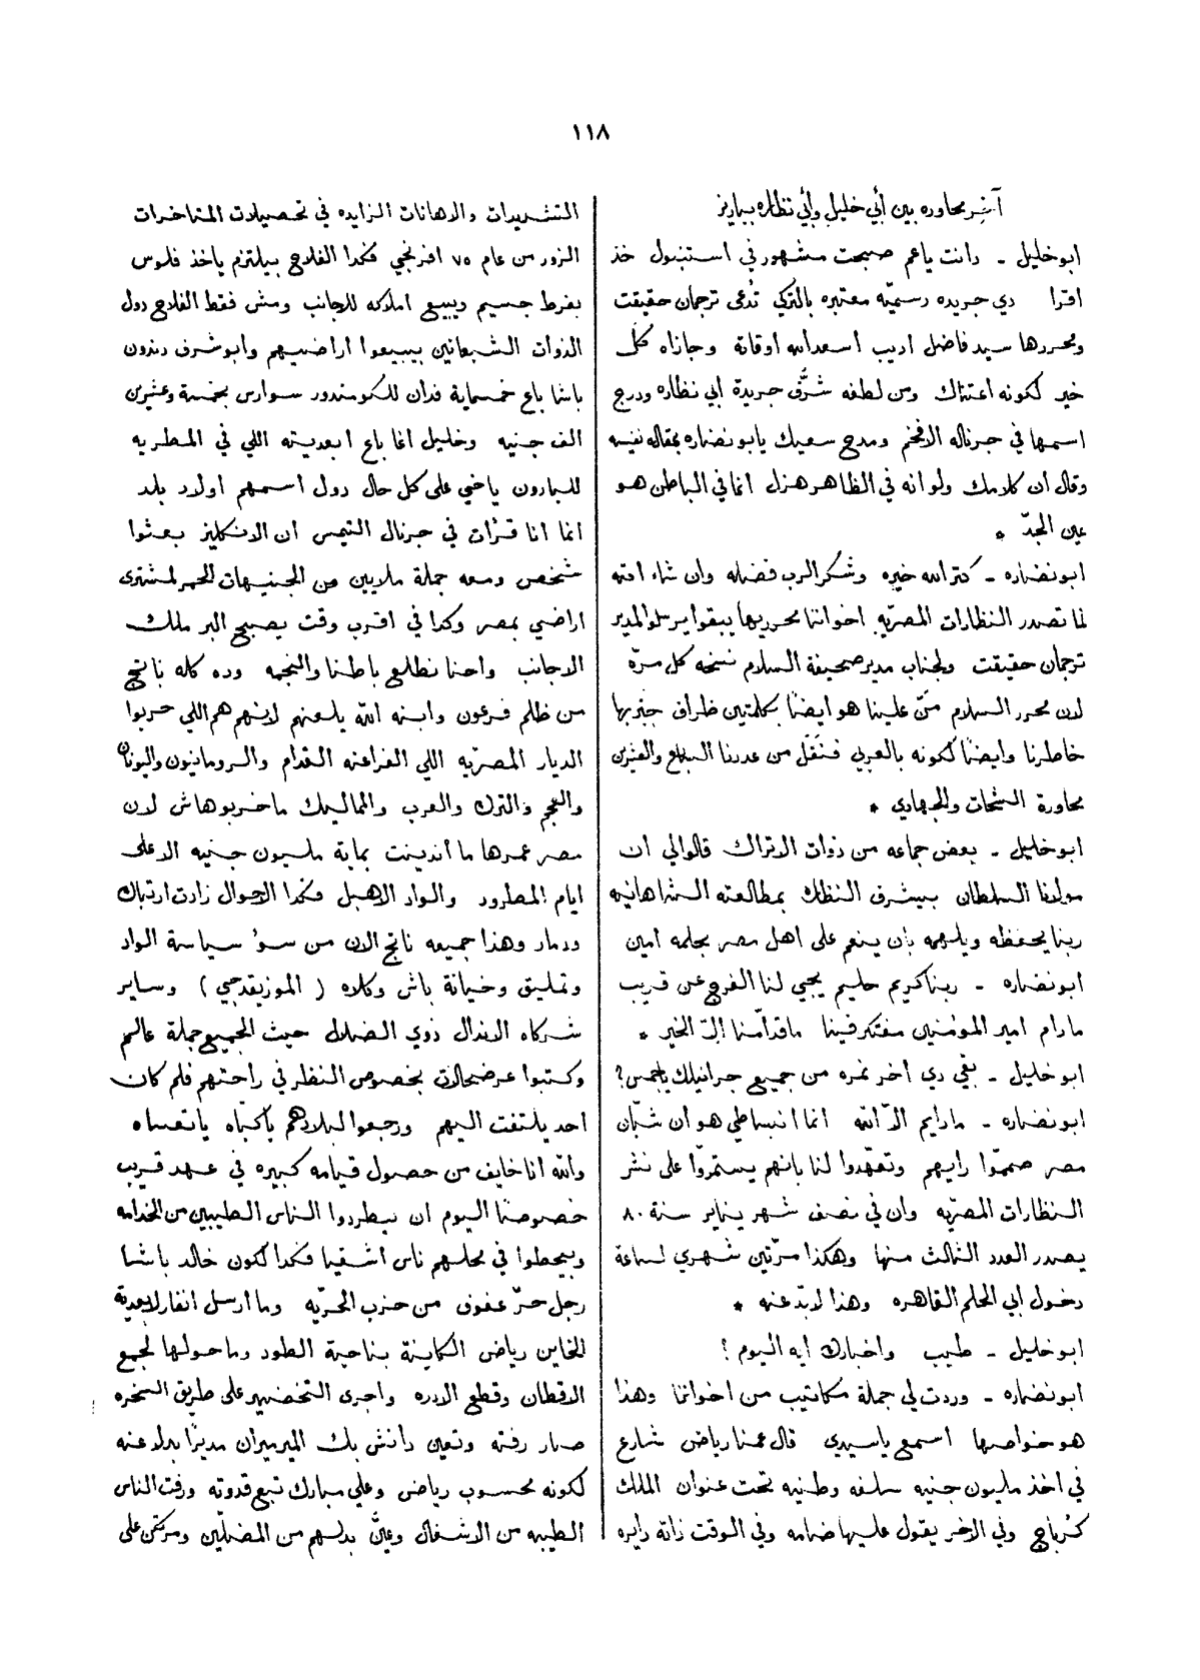 ١١٨
آخر محاوره بين أبي خليل وأبي نظاره بباريز
ابوخليل ـ دانت ياعم صبحت مشهور في استنبول خذ
اقرا دي جريده رسميّه معتبره بالتركي تُدعى ترجمان حقيقت
ومحررها سيد فاضل اديب اسعد الله اوقاته وجازاه كل
خير لكونه اعتناك ومن لطفه شرَّف جريدة ابي نظاره ودرج
اسمها في جرناله الافخم ومدح سعيك يابو نضاره بمقاله نفيسه
وقال ان كلامك ولو انه في الظاهر هزل انما في الباطن هو
عين الجدّ *
ابونضاره ـ كتر الله خيره وشكر الرب فضله وان شاء الله
لما تصدر النظارات المصريّه اخواننا محرريها يبقوا يرسلوا لمدير
ترجمان حقيقت ولجناب مدير صحيفة السلام نسخه كل مرّه
لان محرر السلام مَنّ علينا هو ايضًا بكلمتين ظراف جبر بها
خاطرنا وايضًا لكونه بالعربي فنَقَل من عددنا السابع والعشرين
محاورة الشحات والجهادي *
ابوخليل ـ بعض جماعه من ذوات الاتراك قالوا لي ان
مولانا السلطان بيشرف النظاره بمطالعته الشاهانيه
ربنا يحفظه ويلهمه بان ينعم على اهل مصر بحلمه امين
ابونضاره ـ ربنا كريم حليم يجي لنا الفرج عن قريب
مادام امير المؤمنين مفتكر فينا ماقدامنا الّا الخير *
ابو خليل ـ بقي دي اخر نمره من جميع جرانيلك ياجمس؟
ابونضاره ـ مادايم الّا الله انما انبساطي هو ان شبّان
مصر صمموا رايهم وتعهّدوا لنا بانهم يستمروّا على نشر
النظارات المصريّه وان في نصف شهر يناير سنة ٨٠
يصدر العدد الثالث منها وهكذا مرّتين شهري لساعة
دخول ابي الحلم القاهره وهذا لابدّ عنه *
ابوخليل ـ طيب واخبارك ايه اليوم؟
ابونضاره ـ وردت لي جملة مكاتيب من اخواننا وهذا
هو خواصها اسمع ياسيدي قال عمنا رياض شارع
في اخذ مليون جنيه سلفه وطنيه تحت عنوان الملك
كرباج وفي الاخر يقول عليها ضامه وفي الوقت ذاته دايره
التشديدات والاهانات الزايده في تحصيلات المتاخرات
الزور من عام ٧٥ افرنجي فكدا الفلاح بيلتزم ياخذ فلوس
بفرط جسيم ويبيع املاكه للاجانب ومش فقط الفلاح دول
الذوات الشبعانين بيبيعوا اراضيهم وابو شرف دندون
باشا باع خمسماية فدان للكومندور سوارس بخمسة وعشرين
الف جنيه وخليل اغا باع ابعديته اللي في المطريه
للبارون ياخي على كل حال دول اسمهم اولاد بلد
انما انا قرأت في جرنال التيمس ان الانكليز بعثوا
شخص ومعه جملة ملايين من الجنيهات الحمر لمشترى
اراضي بمصر وكدا في اقرب وقت يصبح البر ملك
الاجانب واحنا نطلع باطنا والنجمه وده كله ناتج
من ظلم فرعون وابنه الله يلعنهم لانهم هم اللي خربوا
الديار المصريّه اللي الفراعنه القدام والرومانيون واليونان
والعجم والترك والعرب والمماليك ماخربوهاش لان
مصر عمرها ما أندينت بماية مليون جنيه الا على
ايام المطرود والواد الاهبل فكدا الاحوال زادت ارتباك
ودمار وهذا جميعه ناتج الان من سوء سياسة الواد
وتمليق وخيانة باش وكلاه ( الموزيقه جي ) وساير
شركاه الاندال ذوي الضلال حيث الجميع جملة عالم
وكتبوا عرضحالات بخصوص النظر في راحتهم فلم كان
احد يلتفت اليهم ورجعوا لبلادهم ياكباه ياتعساه
والله انا خايف من حصول قيامه كبيره في عهد قريب
خصوصًا اليوم ان بيطردوا الناس الطيبين من الخدامه
وبيحطوا في محلهم ناس اشقيا فكدا لكون خالد باشا
رجل حرّ عفوف من حزب الحرّيه وما ارسل انفار لابعدية
الخاين رياض الكاينة بناحية الطود وما حولها لجمع
الاقطان وقطع الادره واجرى التخضير على طريق السخره
صار رفته وتعين دانش بك الميرميران مديرًا بدلا عنه
لكونه محسوب رياض وعلي مبارك تبع قدوته ورفت الناس
الطيبه من الاشغال وعيّن بدلهم من المضلّين ومركّن على